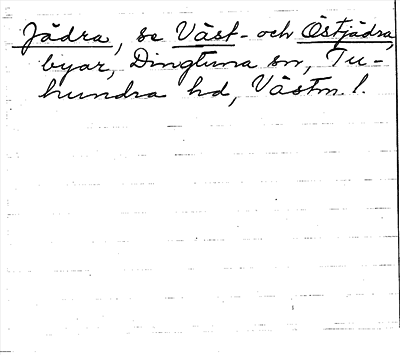 Jädra, se Väst- och Östjädra,
byar, Dingtuna sn, Tu-
hundra hd, Västm. l.